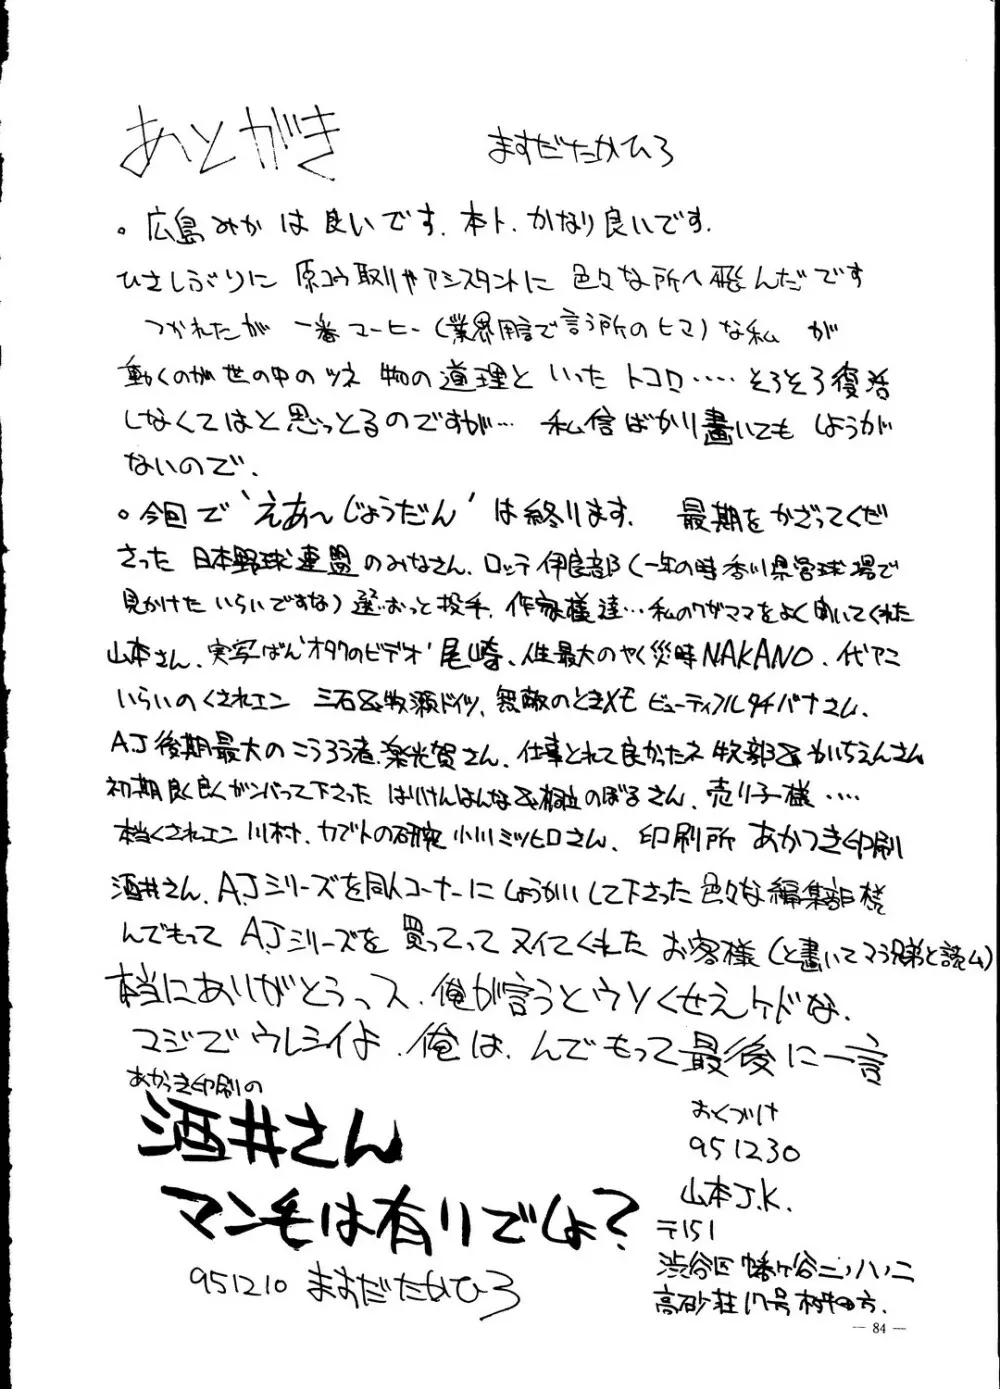 あとがき
ますだたかひろ
。広島みかは良いです.本ト.かなり良いです.
ひさしぶりに 原コウ取りやアシスタントに 色々な所へ飛んだです
つかれたが 一番マーヒー(業界用言で言う所のヒマ)な私 が
動くのが世の中のツネ 物の道理と いった トコロ‥‥ そろそろ復活
しなくてはと 思っとるのですが… 私信ばかり畫いても しょうが
ないので.
。今回で ‘えあ〜じょうだん’ は終ります. 最期を かざってくだ
さった 日本野球連盟のみなさん、ロッテ伊良部(一年の時香川県営球場で
見かけた いらいですな) 投手、作家様達…私のワガママをよく聞いてくれた
山本さん、実写ばん‘オタクのビデオ’尾崎、人生最大のやく災時NAKANO、代アニ
いらいのくされエン 三石&牧瀬ドイツ、無敵のときメモ ビューティフルタチバナさム、
AJ後期最大の こうろう者、楽光賀さん、仕事とれて良かったネ 牧部& かいちえんさん
初期良く良くガンバって下さった はりけんはんな&桐立のぼるさん、売り子様‥‥
本当くされエン 川村、カブトの研究 小川ミツヒロさん、 印刷所 あかつき印刷
酒井さん、A.Jシリーズを同人コーナーに しょうかいして下さった 色々な編集部様
んでもって A.Jシリーズを 買ってって ヌイてくれた お客様 (と書いてマう兄弟と読ム)
本当にありがとうっス.俺が言うとウソくせえケドな.
マジで ウレシイよ.俺は.んでもって最後に一言
あかつき印刷の
酒井さん
マン毛は有りでしょ?
951210 ますだたかひろ
おくづけ
951230
山本J.K.
〒151
渋谷区 幡ヶ谷二ノ八ノ二
高砂荘17号 方.
— 84 —